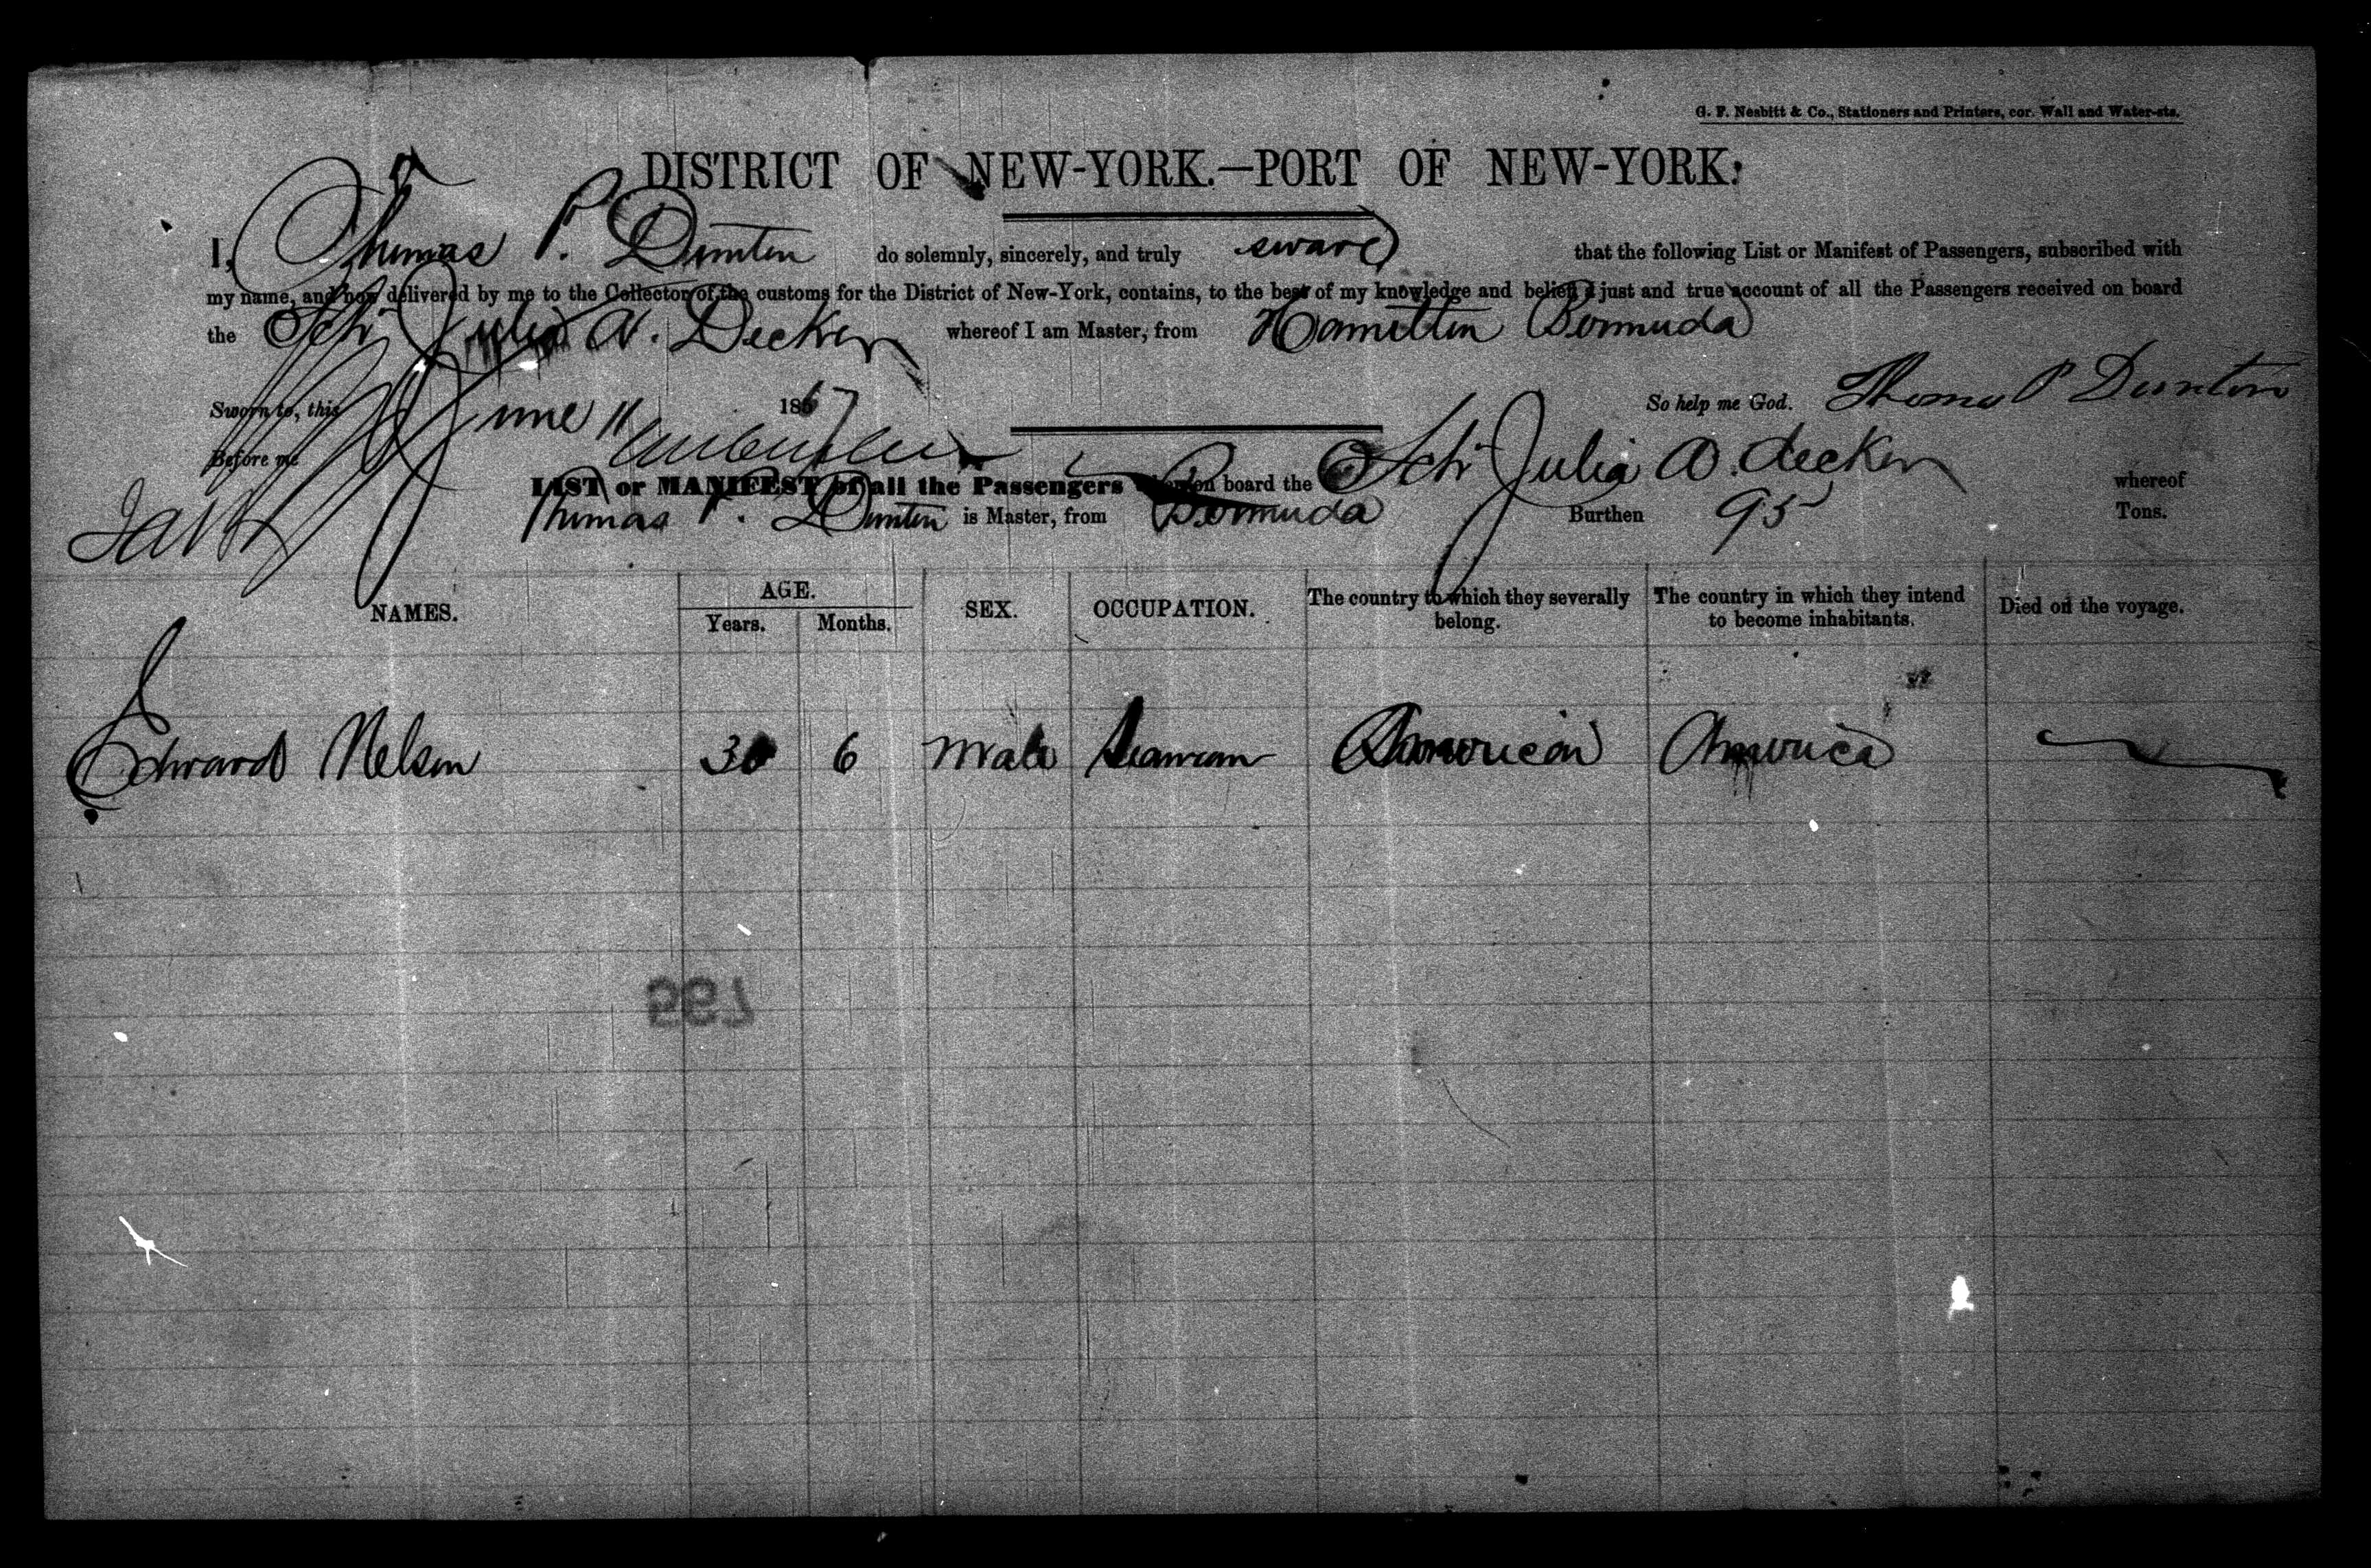 G. F. Nesbitt & Co., Stationers and Printers, cor. Wall and Water-sts.
DISTRICT OF NEW-YORK.—PORT OF NEW-YORK:
I, Thomas P. Dunton do solemnly, sincerely, and truly sware that the following List or Manifest of Passengers, subscribed with
my name, and now delivered by me to the Collector of the customs for the District of New-York, contains, to the best of my knowledge and belief, a just and true account of all the Passengers received on board
the Schr Julia A. Decker whereof I am Master, from Hamilton Bermuda
Sworn to, this June 11 1867 So help me God. Thomas P Dunton
Before me
LIST or MANIFEST of all the Passengers board the Schr Julia A. decker whereof
Thomas P. Dunton is Master, from Bermuda Burthen 95 Tons.
NAMES. AGE. Years. Months. SEX. OCCUPATION. The country to which they severally belong. The country in which they intend to become inhabitants. Died on the voyage.
Edward Nelson 30 6 Male Seaman American America
567